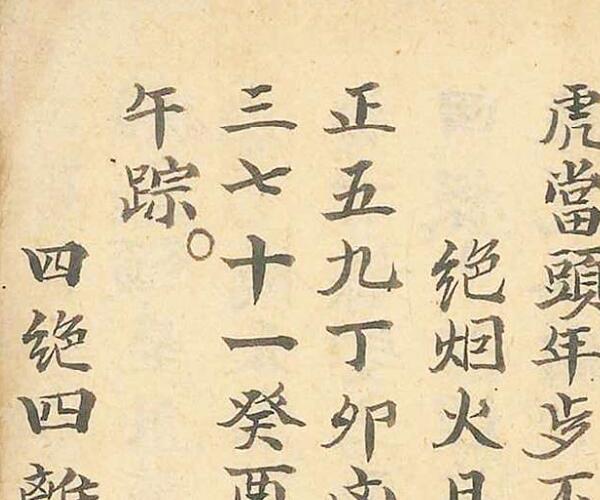 虎當頭年歩
绝烟火日
正五九丁卯
三七十一癸酉
午踪。
四绝四離